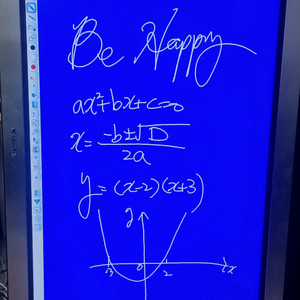 Be Happy
ax²+bx+c=0
x = -b±√D / 2a
y = (x-2)(x+3)
y
-3 0 2 x